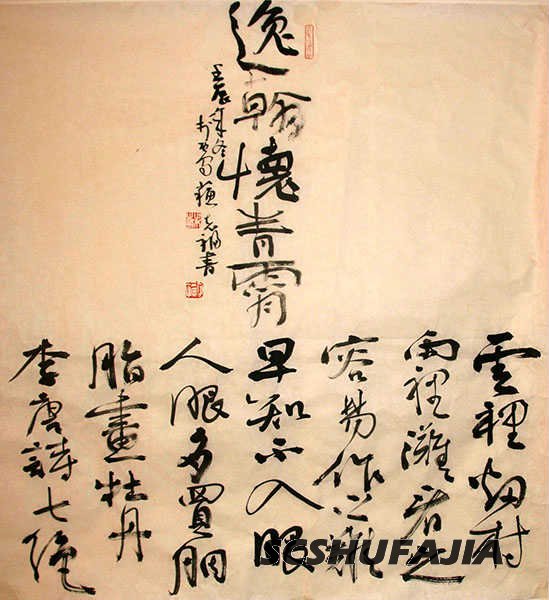 逸翰懷青霄
壬辰年冬
雲裡烟村
雨裡灘看之
容易作之難
早知不入眼
人眼多買胭
脂畫牡丹
李唐詩七絕
SCSHUFAJIA